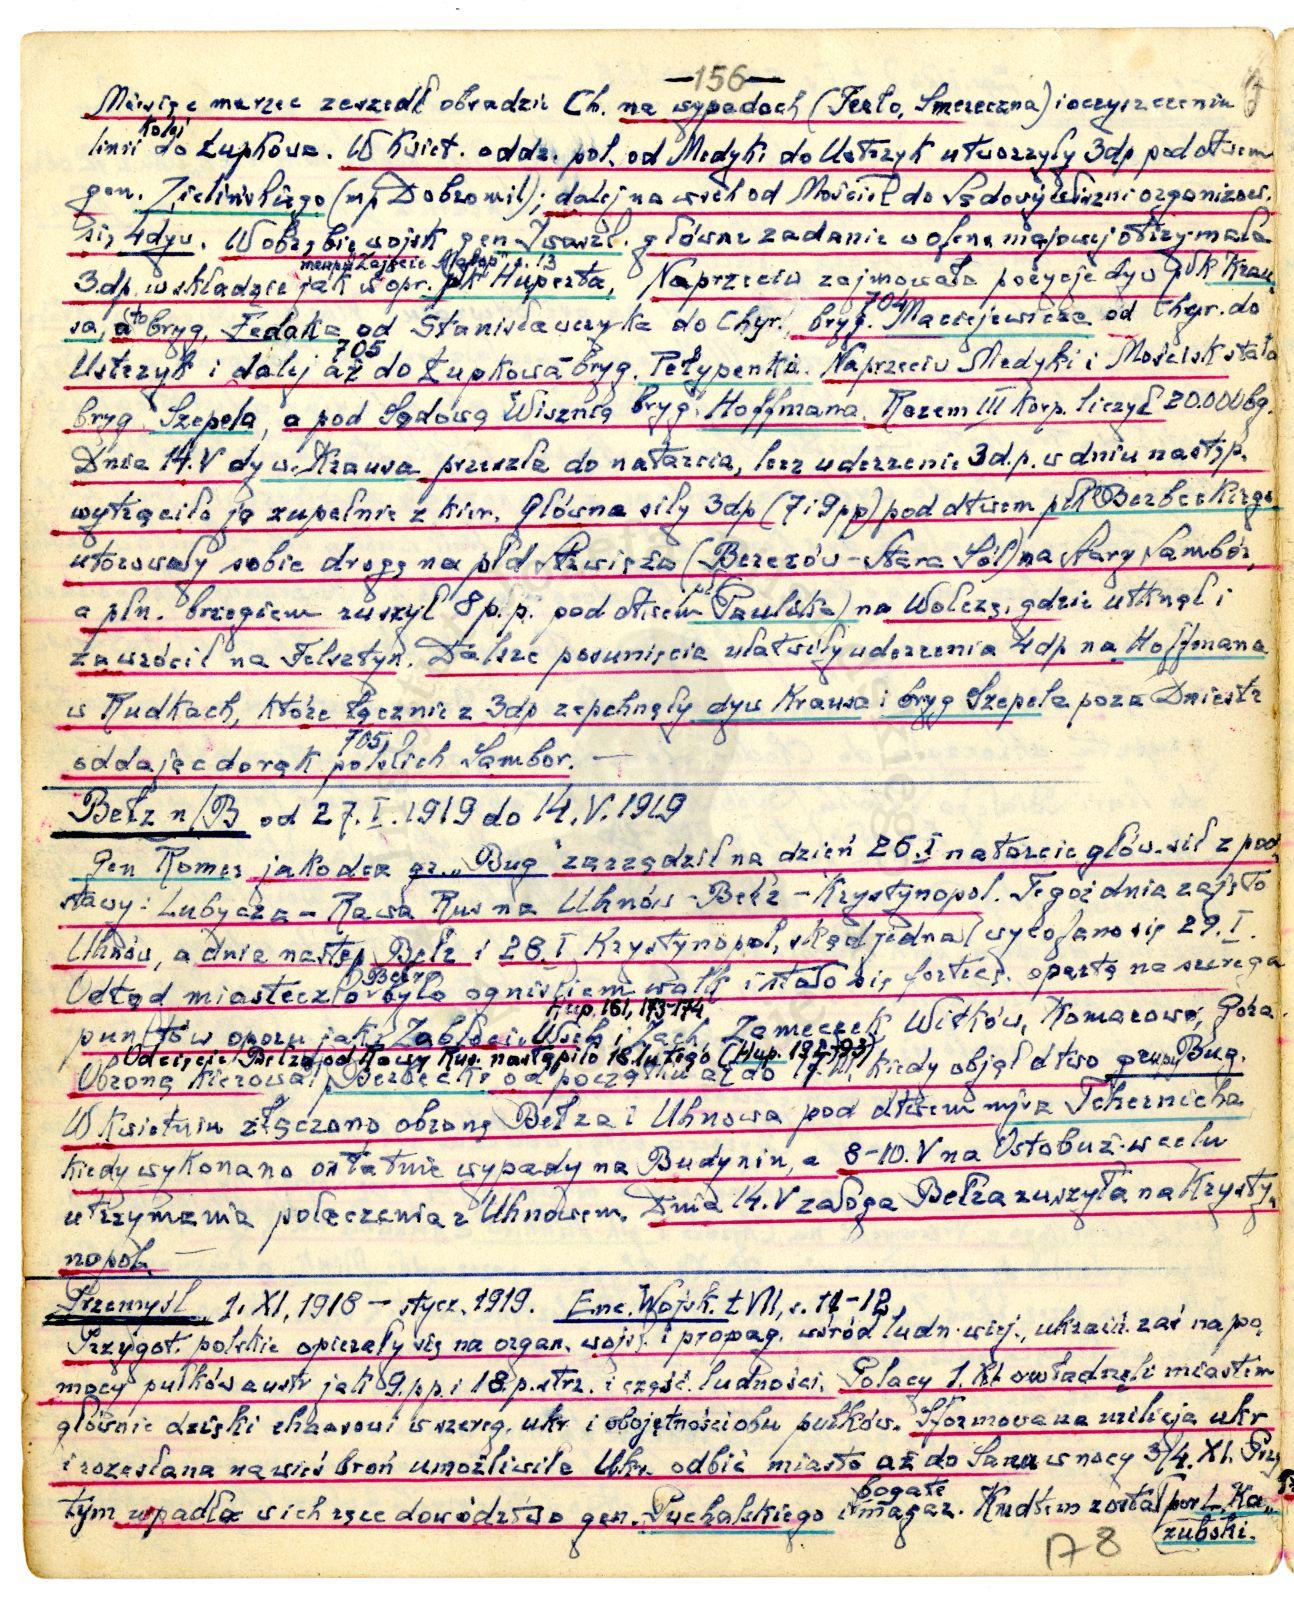 —156—
Miesiąc marzec zeszedł obradzie Ch. na wypadach (Terło, Smereczna) i oczyszczeniu
kolej
linii do Łupkowa. W kwiet. oddz. pol. od Medyki do Ustrzyk utworzyły 3dp pod dtwem
gen. Zielińskiego (mp Dobromil); dalej na wsch od Mościsk do Sądowej Wiszni organizow.
się 4 dyw. W obrębie wojsk gen Iwaszk. główne zadanie w ofens majowej otrzymała
"Zajęcie s. 13
3.dp. w składzie jak w opr. płk Huperta, Naprzeciw zajmowała pozycje dyw płk Krau-
704
sa, a to bryg. Fedaka od Stanisławczyka do Chyr., bryg. Maciejewicza od Chyr. do
705
Ustrzyk i dalej aż do Łupkowa bryg. Petypenki. Naprzeciw Medyki i Mościsk stała
bryg. Szepela, a pod Sądową Wisznią bryg. Hoffmana. Razem III Korp. liczył 20.000 bg.
Dnia 14.V dyw. Krausa przeszła do natarcia, lecz uderzenie 3d.p. w dniu następ.
wytrąciło ją zupełnie z kier. Główne siły 3dp (7 i 9pp) pod dtwem płk Berbeckiego
utorowały sobie drogę na płd Strwiąża (Berezów – Stara Sól) na Stary Sambór,
a płn. brzegiem ruszył 8 p.p. pod dtwem Paulika) na Wolczę, gdzie utknął i
zawrócił na Felsztyn. Dalsze posunięcia ułatwiły uderzenia 4dp na Hoffmana
w Rudkach, które łącznie z 3dp zepchnęły dyw Krausa i bryg Szepela poza Dniestr
705
oddając do rąk polskich Sambor. —
Bełz n/B od 27.I.1919 do 14.V.1919
Gen Romer jako dca gr. „Bug" zarządził na dzień 26.I natarcie głów. sił z pod-
stawy: Lubycza – Rawa Rus na Uhnów – Bełz – Krystynopol. Tegoż dnia zajęto
Uhnów, a dnia następ Bełz i 28.I Krystynopol, skąd jednak wycofano się 29.I.
Bełz
Odtąd miasteczko było ogniskiem walk i stało się fortec. opartą na szeregu
Hup. 161, 173-174
punktów oporu jak: Zabłocie Wsch i Zach, Zameczek Witków, Komarowo, Góra.
Odcięcie Bełza od Rawy Rus. nastąpiło 18. lutego (Hup. 192-93)
Obroną kierował Berbecki od początku aż do kiedy objął dtwo grupy Bug.
W kwietniu złączono obronę Bełza i Uhnowa pod dtwem mjra Tchernicha
kiedy wykonano ostatnie wypady na Budynin, a 8-10.V na Ostobuż w celu
utrzymania połączenia z Uhnowem. Dnia 14.V załoga Bełza ruszyła na Krysty-
nopol. —
Przemyśl 1.XI.1918 – stycz. 1919. Enc. Wojsk. t. VII, s. 11-12
Przygot. polskie opierały się na organ. wojs. i propag. wśród ludn. wiej., ukraiń. zaś na po-
mocy pułków austr jak 9.pp. i 18.p.strz. i część. ludności. Polacy 1.XI owładnęli miastem
głównie dzięki chaosowi w szereg. ukr. i obojętności obu pułków. Sformowana milicja ukr
i rozesłana na wieś broń umożliwiła Ukr. odbić miasto aż do Sanu w nocy 3/4.XI. Przy
bogate
tym wpadła w ich ręce dowództwo gen. Puchalskiego i magaz. Kmdtem został por L. Ka-
zubski.
178